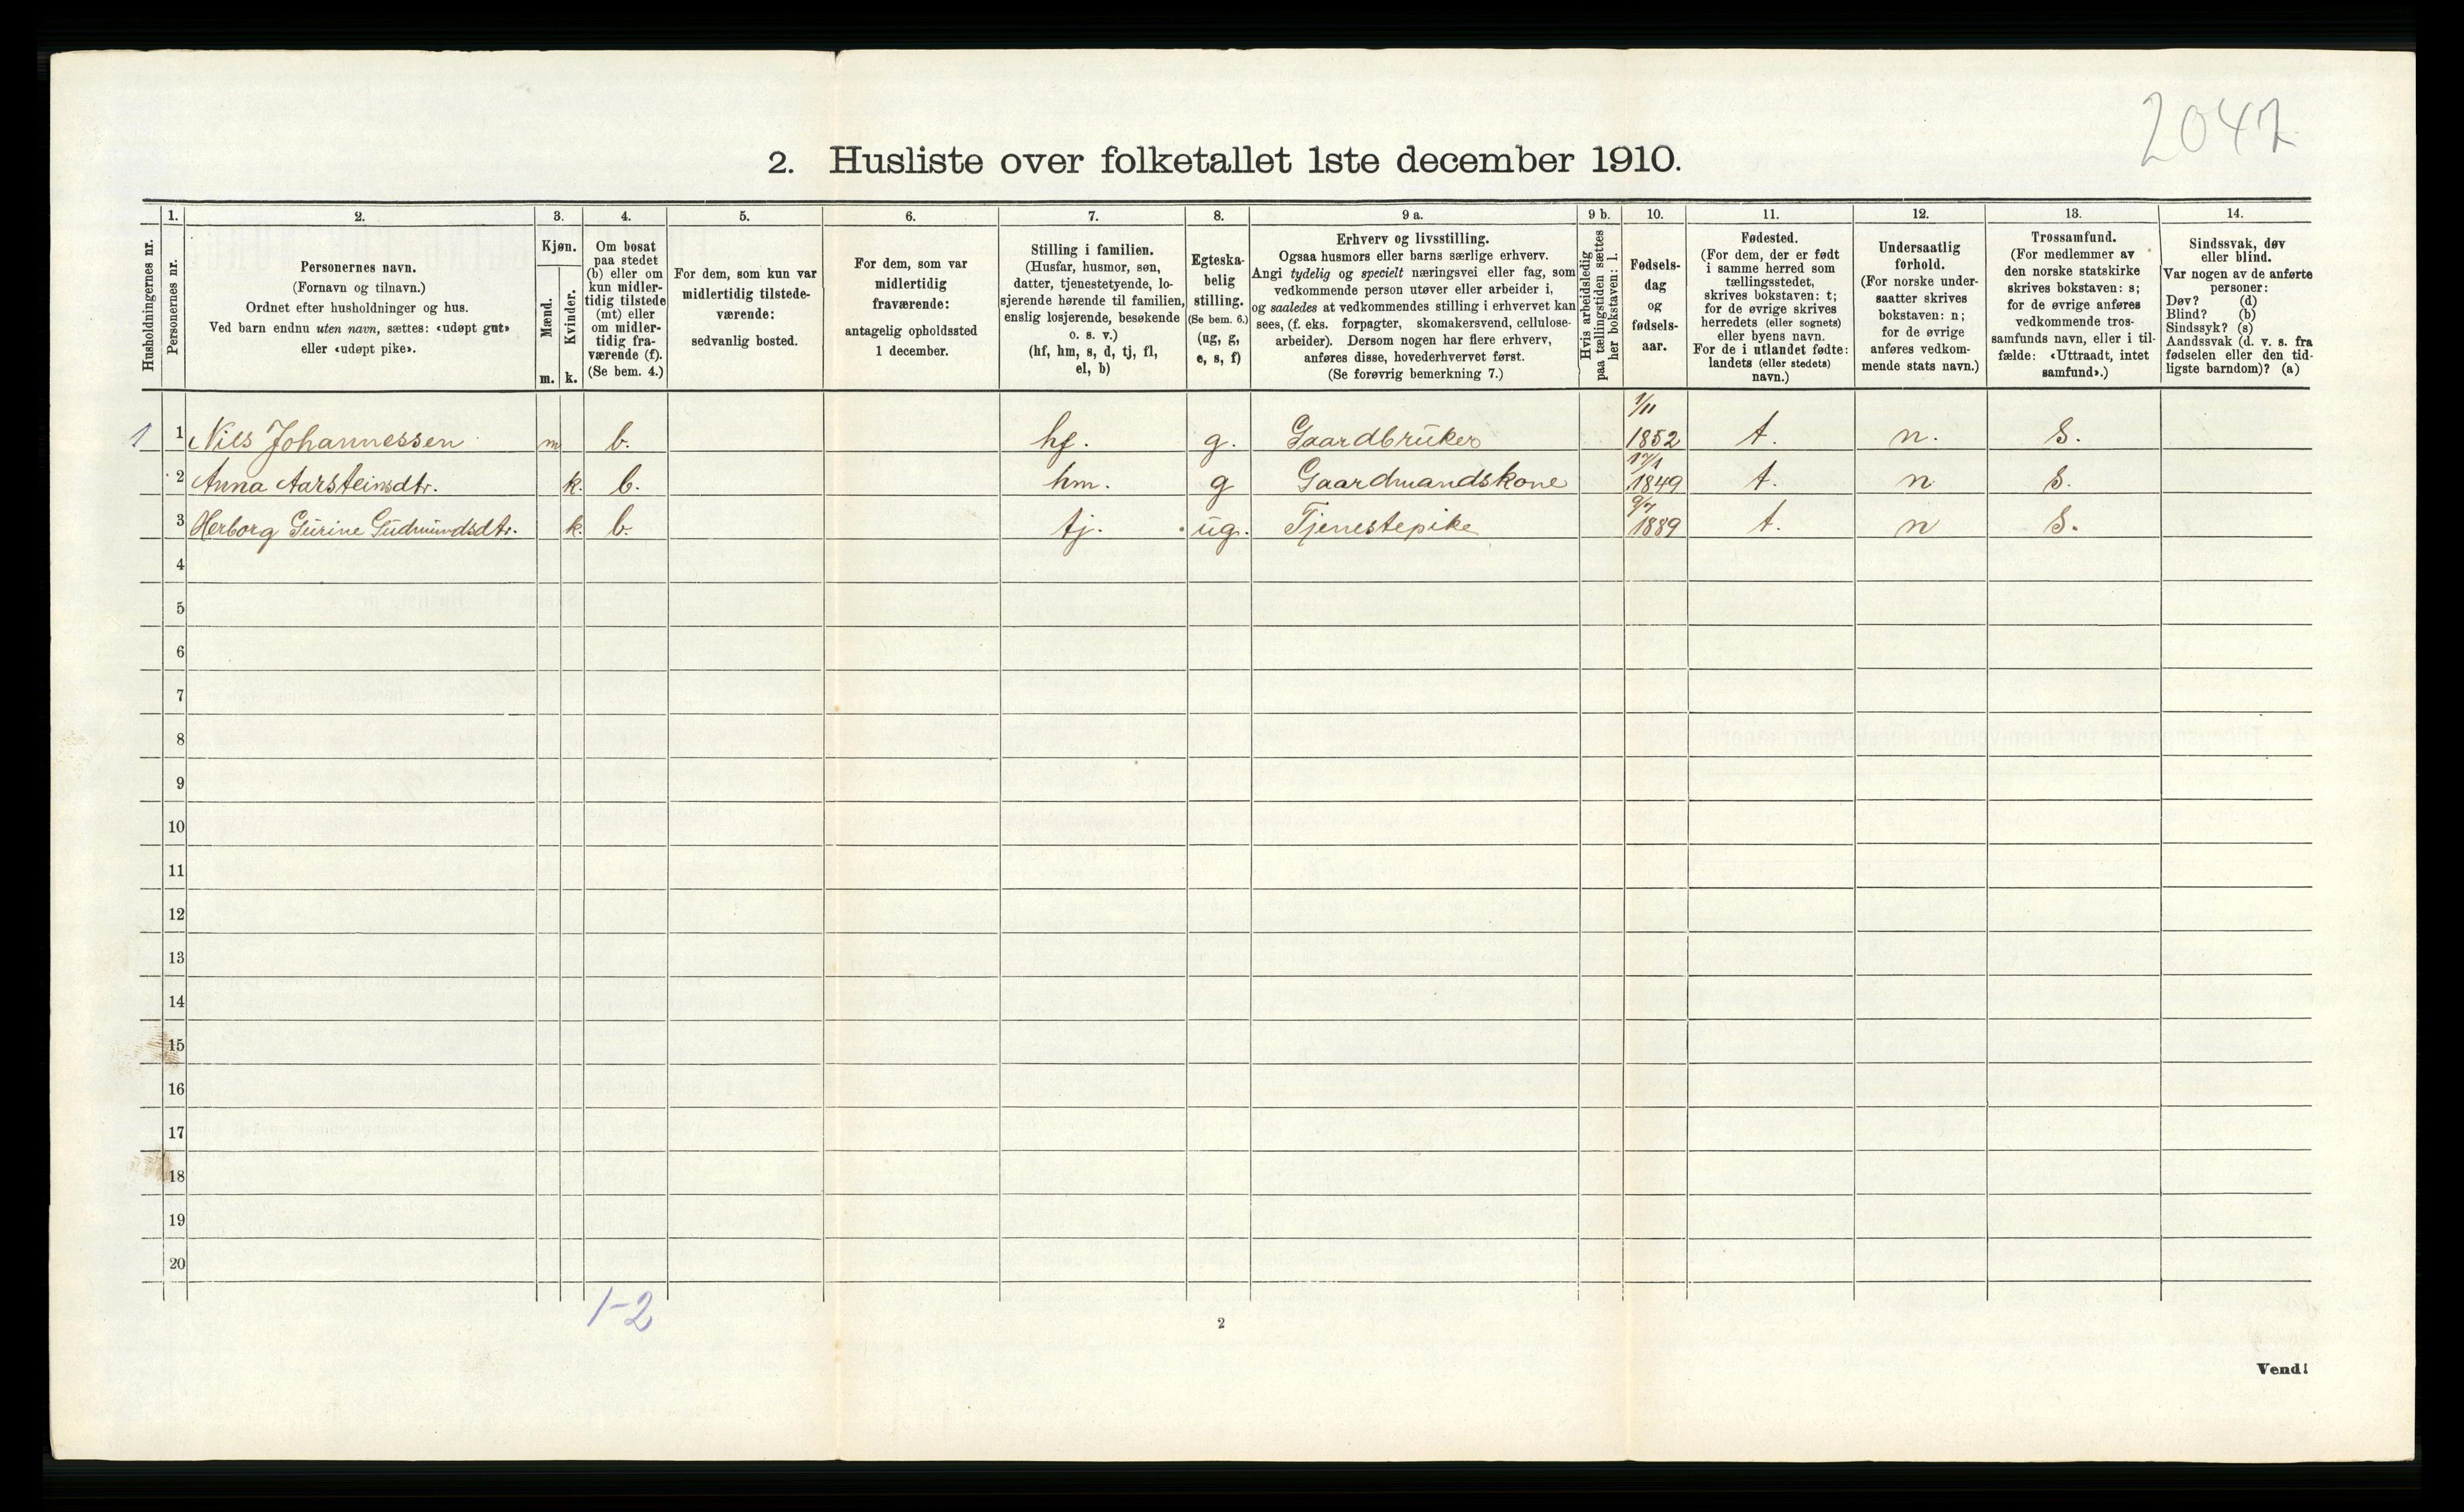 2047
2. Husliste over folketallet 1ste december 1910.
Husholdningernes nr.
1.
Personernes nr.
2.
Personernes navn.
(Fornavn og tilnavn.)
Ordnet efter husholdninger og hus.
Ved barn endnu uten navn, sættes: «udøpt gut»
eller «udøpt pike».
3.
Kjøn.
Mænd.
m.
Kvinder.
k.
4.
Om bosat
paa stedet
(b) eller om
kun midler-
tidig tilstede
(mt) eller
om midler-
tidig fra-
værende (f).
(Se bem. 4.)
5.
For dem, som kun var
midlertidig tilstede-
værende:
sedvanlig bosted.
6.
For dem, som var
midlertidig
fraværende:
antagelig opholdssted
1 december.
7.
Stilling i familien.
(Husfar, husmor, søn,
datter, tjenestetyende, lo-
sjerende hørende til familien,
enslig losjerende, besøkende
o. s. v.)
(hf, hm, s, d, tj, fl,
el, b)
8.
Egteska-
belig
stilling.
(Se bem. 6.)
(ug, g,
e, s, f)
9 a.
Erhverv og livsstilling.
Ogsaa husmors eller barns særlige erhverv.
Angi tydelig og specielt næringsvei eller fag, som
vedkommende person utøver eller arbeider i,
og saaledes at vedkommendes stilling i erhvervet kan
sees, (f. eks. forpagter, skomakersvend, cellulose-
arbeider). Dersom nogen har flere erhverv,
anføres disse, hovederhvervet først.
(Se forøvrig bemerkning 7.)
9 b.
Hvis arbeidsledig
paa tællingstiden sættes
her bokstaven: l.
10.
Fødsels-
dag
og
fødsels-
aar.
11.
Fødested.
(For dem, der er født
i samme herred som
tællingsstedet,
skrives bokstaven: t;
for de øvrige skrives
herredets (eller sognets)
eller byens navn.
For de i utlandet fødte:
landets (eller stedets)
navn.)
12.
Undersaatlig
forhold.
(For norske under-
saatter skrives
bokstaven: n;
for de øvrige
anføres vedkom-
mende stats navn.)
13.
Trossamfund.
(For medlemmer av
den norske statskirke
skrives bokstaven: s;
for de øvrige anføres
vedkommende tros-
samfunds navn, eller i til-
fælde: «Uttraadt, intet
samfund».)
14.
Sindssvak, døv
eller blind.
Var nogen av de anførte
personer:
Døv? (d)
Blind? (b)
Sindssyk? (s)
Aandssvak (d. v. s. fra
fødselen eller den tid-
ligste barndom)? (a)
1 1 Nils Johannessen m b. hf. g. Gaardbruker 1/11 1852 t. n. S.
2 Anna Aarsteinsdtr. k. b. hm. g Gaardmandskone 17/1 1849 t. n S.
3 Herborg Gurine Gudmundsdtr. k. b. tj. ug. Tjenestepike 9/7 1889 t. n S.
4
5
6
7
8
9
10
11
12
13
14
15
16
17
18
19
20
1-2
2
Vend!